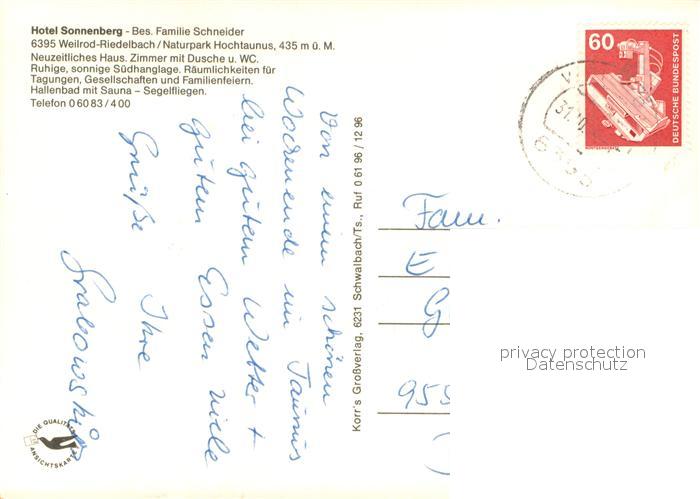 Hotel Sonnenberg - Bes. Familie Schneider
6395 Weilrod-Riedelbach / Naturpark Hochtaunus, 435 m ü. M.
Neuzeitliches Haus. Zimmer mit Dusche u. WC.
Ruhige, sonnige Südhanglage. Räumlichkeiten für
Tagungen, Gesellschaften und Familienfeiern.
Hallenbad mit Sauna – Segelfliegen.
Telefon 0 60 83 / 4 00
Von einem schönen
Wochenende im Taunus
bei gutem Wetter +
gutem Essen viele
Grüße Ihre
Grabowskis
Korr's Großverlag, 6231 Schwalbach/Ts., Ruf 0 61 96 / 12 96
60
DEUTSCHE BUNDESPOST
31.10.
Fam.
E
G
955
privacy protection
Datenschutz
DIE QUALITÄTS
ANSICHTSKARTE